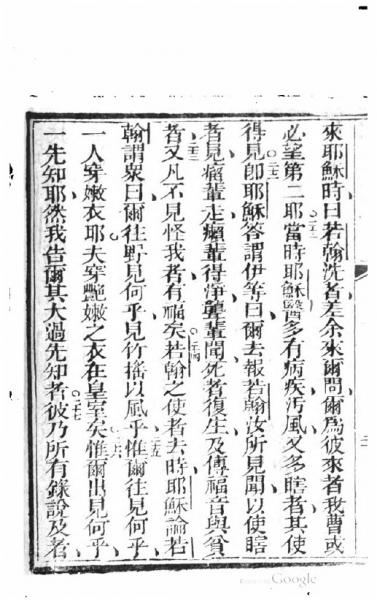 來耶穌時曰若翰洗者差余來爾問爾為彼來者我曹或
必望第二耶當時耶穌醫多有病疾汚風又多瞎者其使
得見卽耶穌答謂伊等曰爾去報若翰汝所見聞以使瞎
者見瘸輩走癩輩得淨聾輩聞死者復生及傳福音與貧
者又凡不見怪我者有福矣若翰之使者去時耶穌論若
翰謂衆曰爾往野見何乎見竹搖以風乎惟爾往見何乎
一人穿嫩衣耶夫穿艷嫩之衣在皇室矣惟爾出見何乎
一先知耶然我告爾其大過先知者彼乃所有錄說及者
Google